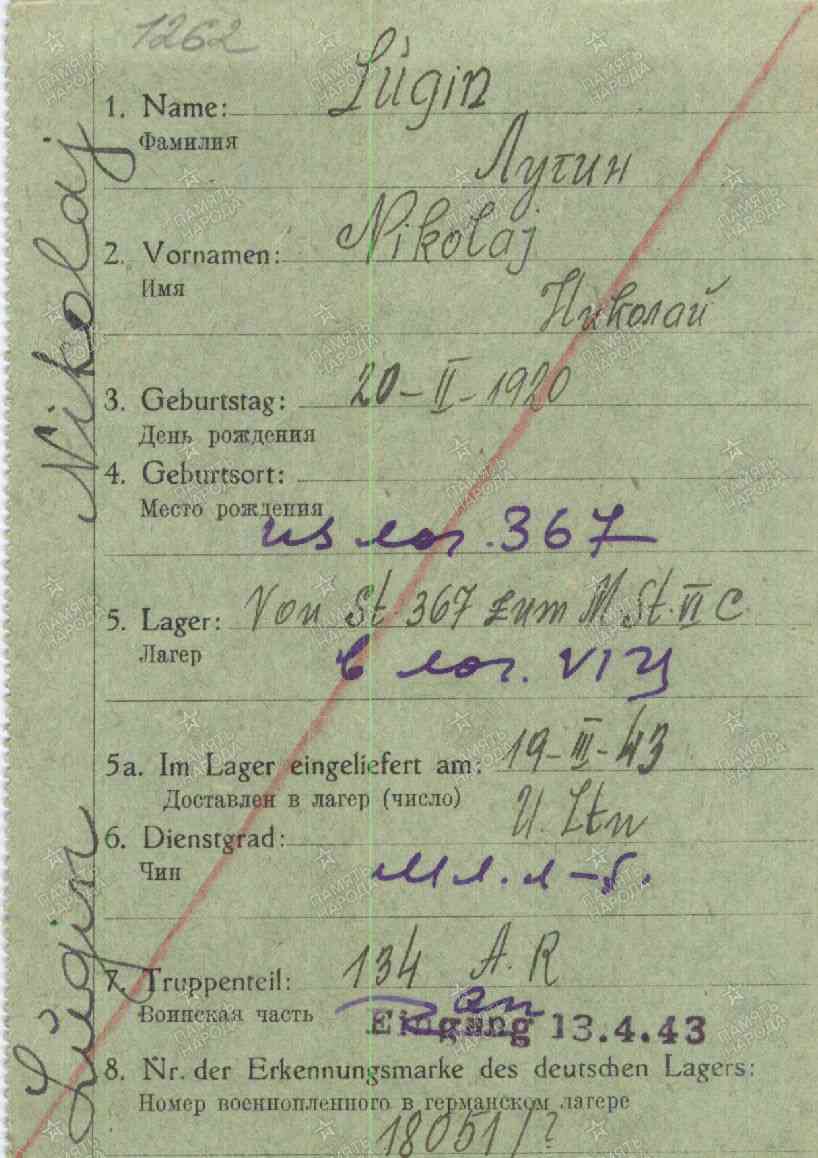 1262
1. Name: Lúgin
Фамилия
Лугин
2. Vornamen: Nikolaj
Имя
Николай
3. Geburtstag: 20-II-1920
День рождения
4. Geburtsort:
Место рождения
из лаг. 367
5. Lager: Von St 367 zum M St. VI C
Лагерь
в лаг. VI Ц
5a. Im Lager eingeliefert am: 19-III-43
Доставлен в лагер (число)
U. Ltn
6. Dienstgrad:
Чин
мл. л-т.
7. Truppenteil: 134 A. R
Воинская часть
ап
Eingang 13.4.43
8. Nr. der Erkennungsmarke des deutschen Lagers:
Номер военнопленного в германском лагере
18051/?
Lúgin Nikolaj
ПАМЯТЬ НАРОДА